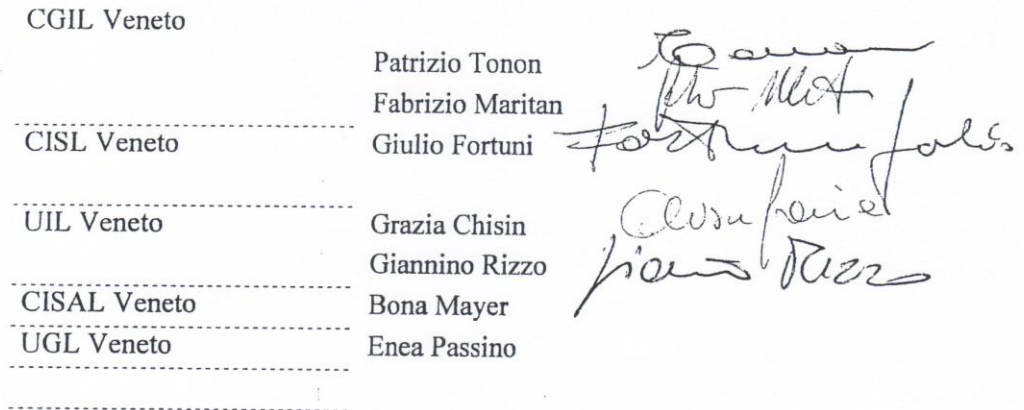 CGIL Veneto
Patrizio Tonon
Fabrizio Maritan
CISL Veneto Giulio Fortuni Fortuni Giulio
UIL Veneto Grazia Chisin
Giannino Rizzo Rizzo
CISAL Veneto Bona Mayer
UGL Veneto Enea Passino